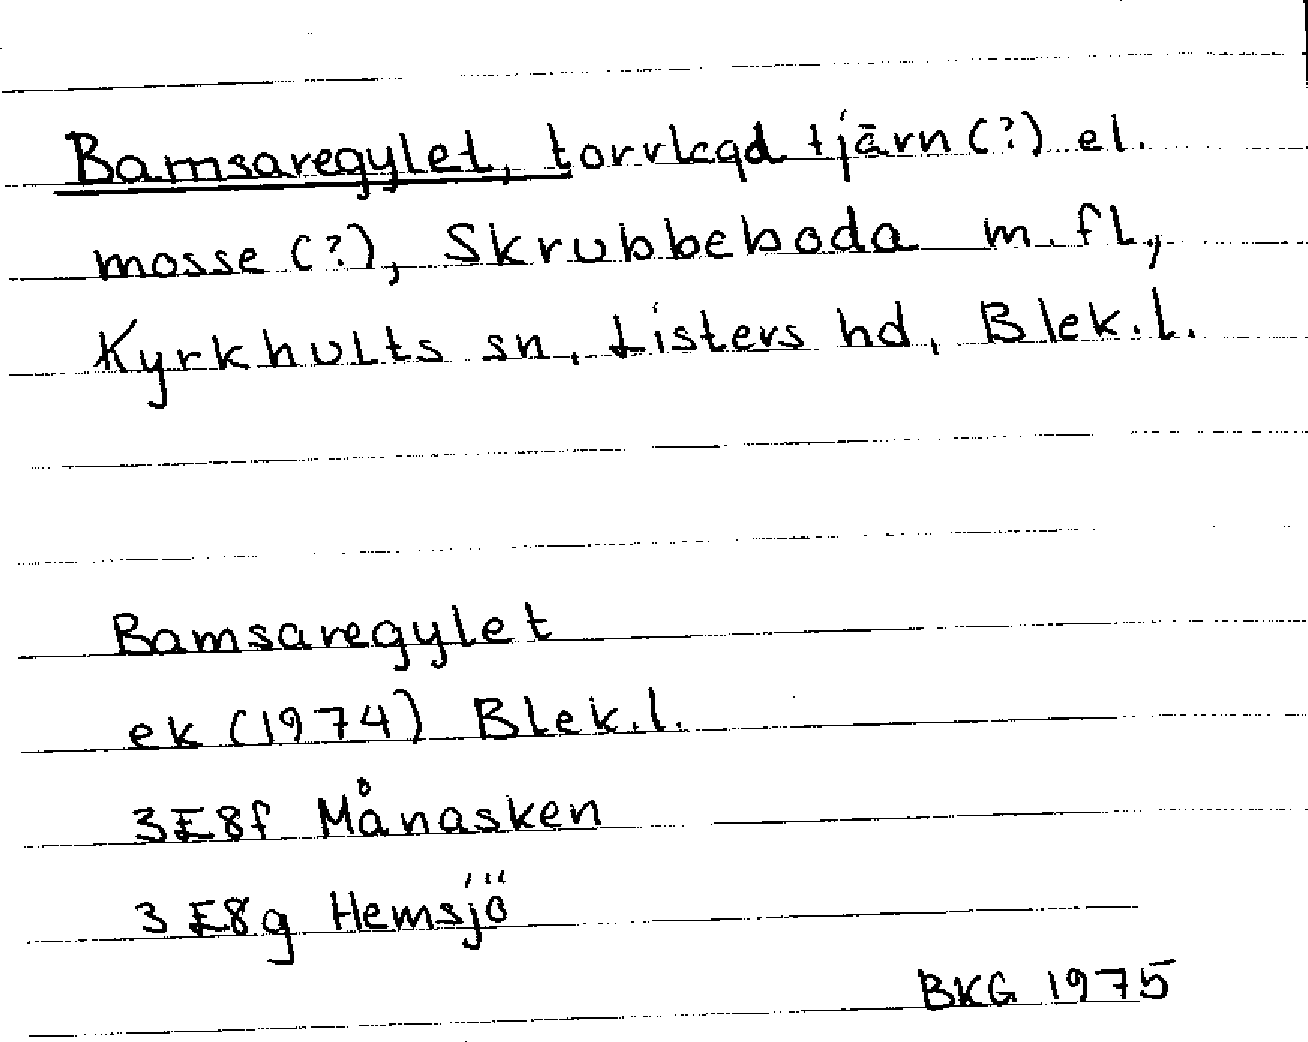 Bamsaregylet, torvlagd tjärn (?) el.
mosse (?), Skrubbeboda m. fl.,
Kyrkhults sn, Listers hd, Blek.l.
Bamsaregylet
ek (1974) Blek.l.
3E8f Månasken
3E8g Hemsjö
BKG 1975